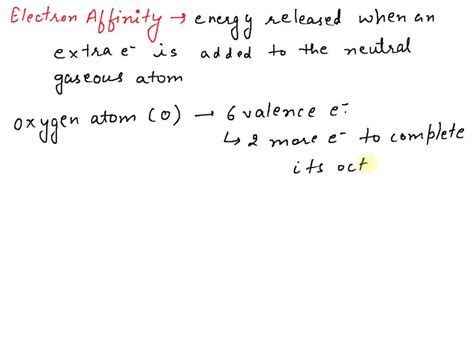 Electron Affinity → energy released when an
extra e⁻ is added to the neutral
gaseous atom
oxygen atom (O) → 6 valence e⁻.
↳ 2 more e⁻ to complete
its oct